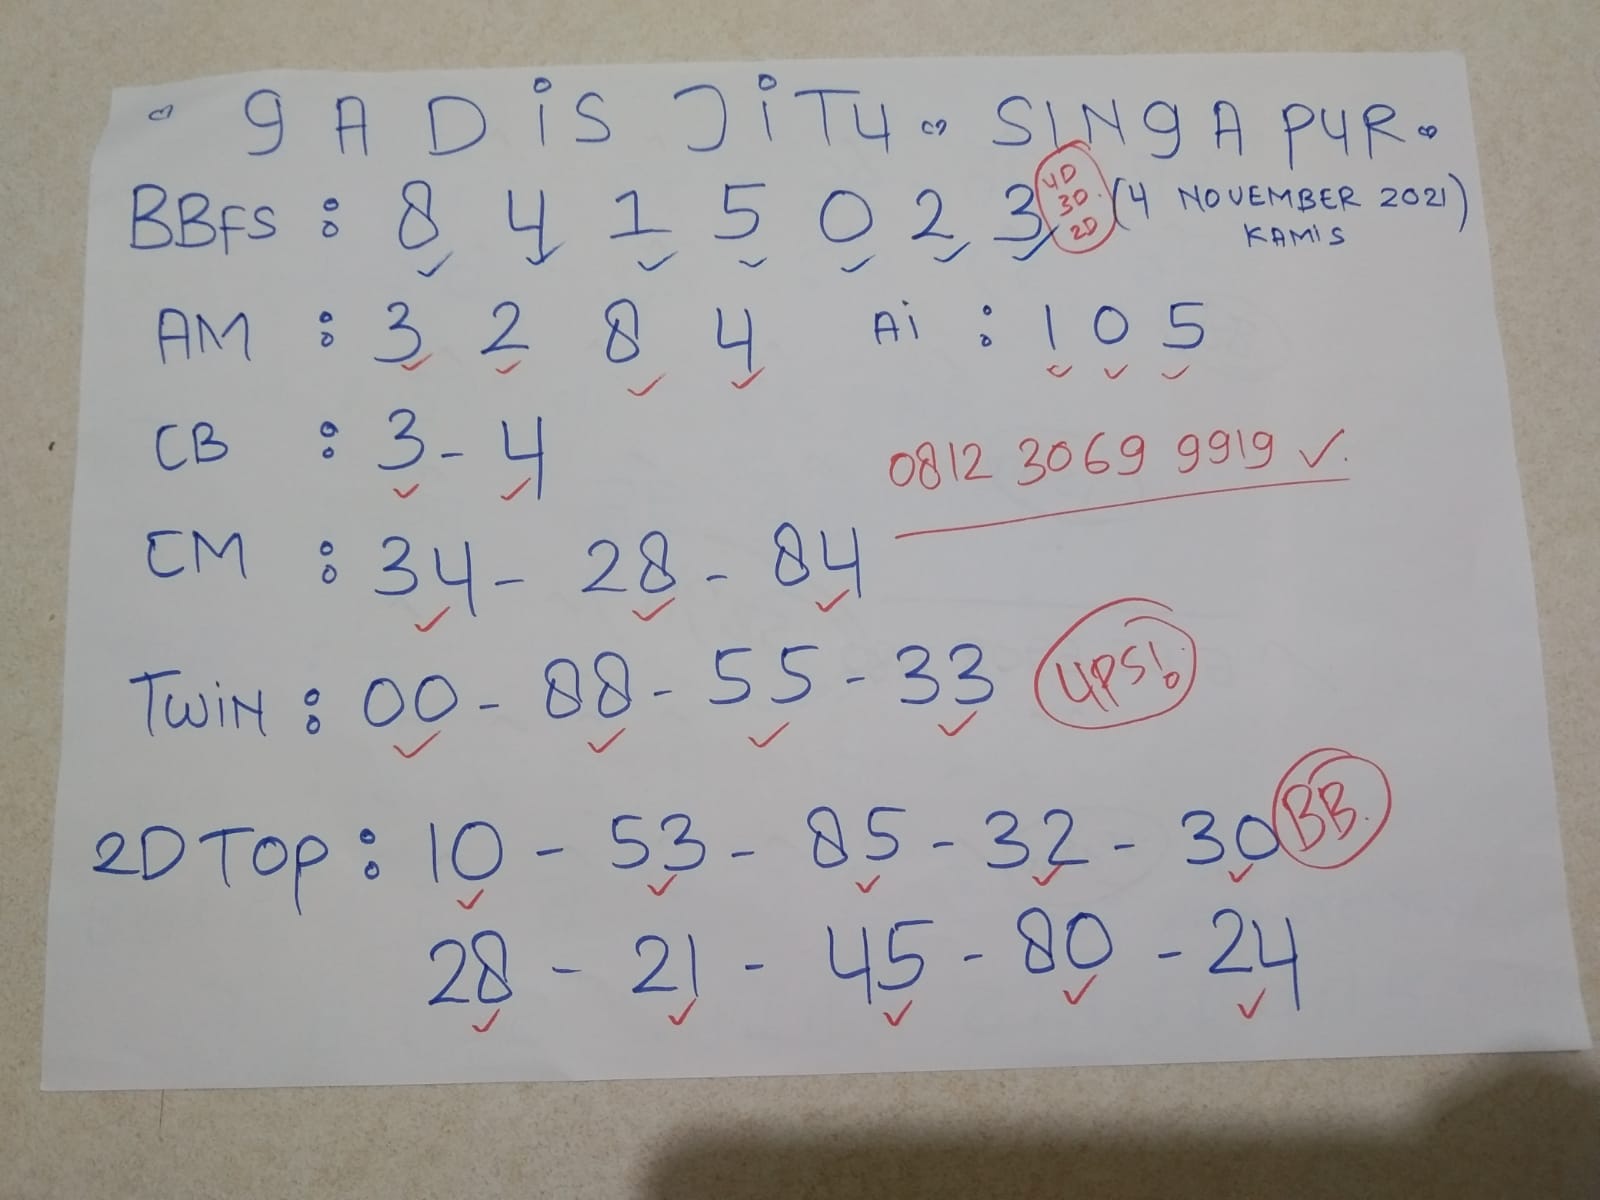 GADIS JITU SINGAPUR
BBFS : 8 4 1 5 0 2 3 4D 3D 2D (4 NOVEMBER 2021)
KAMIS
AM : 3 2 8 4 Ai : 1 0 5
CB : 3 - 4
0812 3069 9919 ✓.
CM : 34 - 28 - 84
TWIN : 00 - 88 - 55 - 33 UPS!
2D TOP : 10 - 53 - 85 - 32 - 30 BB.
28 - 21 - 45 - 80 - 24